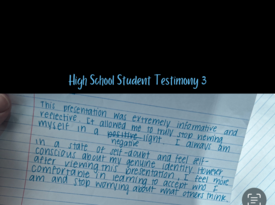 High School Student Testimony 3
This presentation was extremely informative and
reflective. It allowed me to truly stop viewing
myself in a positive light. I always am
negative
in a state of self-doubt and feel self-
conscious about my genuine identity. However
after viewing this presentation, I feel more
comfortable in learning to accept who I
am and stop worrying about what others think.